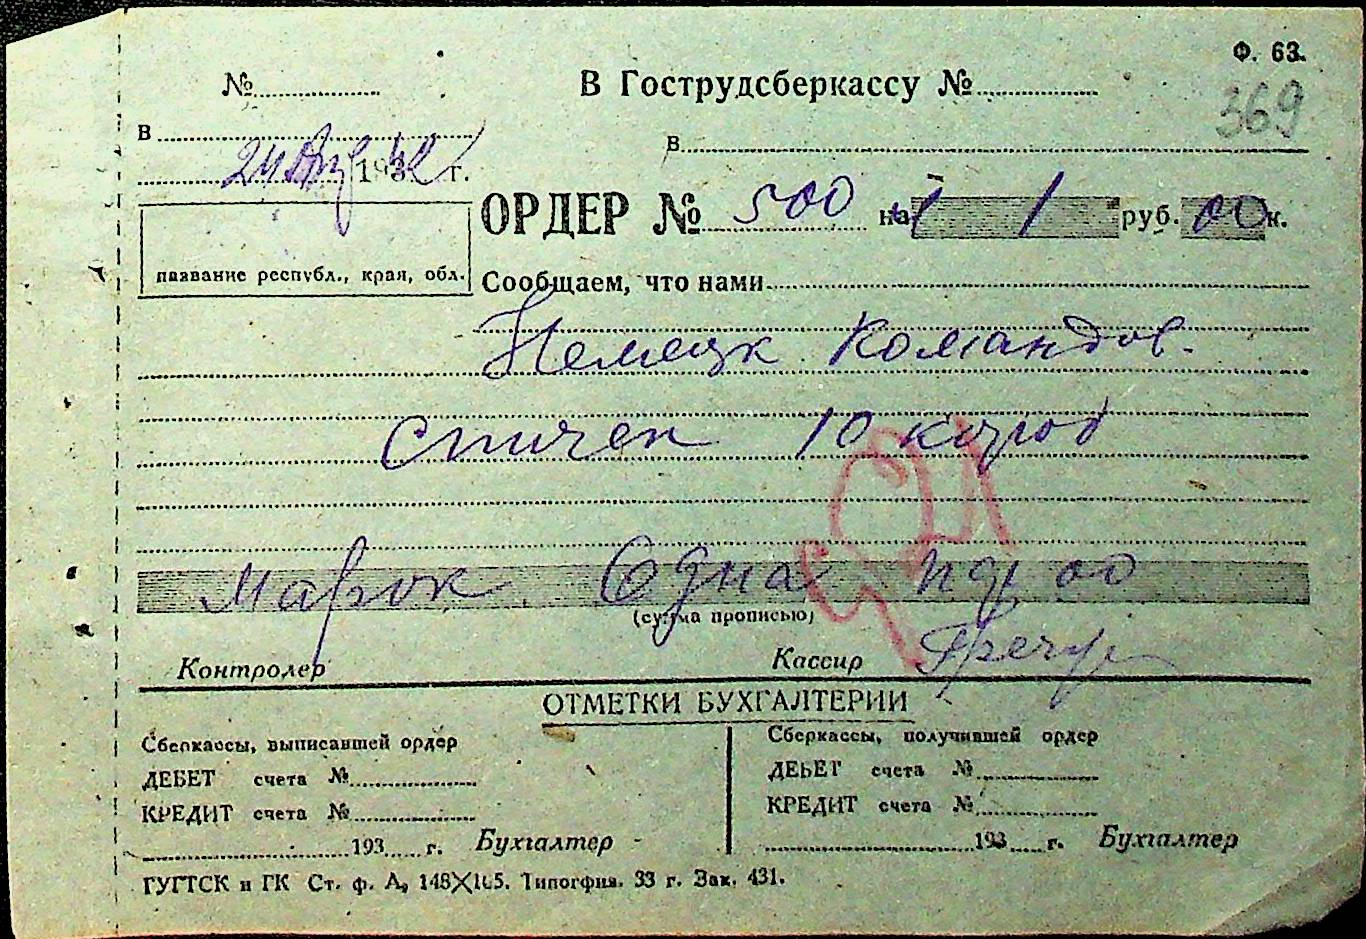 Ф. 63.
№ В Гострудсберкассу №
369
в в
24 193 г.
ОРДЕР № 500 на 1 руб. 00 к.
название республ., края, обл. Сообщаем, что нами
Немецк Командов.
Спичек 10 короб
Марок Одна пф 00
(сумма прописью)
Контролер Кассир
ОТМЕТКИ БУХГАЛТЕРИИ
Сберкассы, выписавшей ордер Сберкассы, получившей ордер
ДЕБЕТ счета № ДЕБЕТ счета №
КРЕДИТ счета № КРЕДИТ счета №
193 г. Бухгалтер 193 г. Бухгалтер
ГУГТСК и ГК Ст. ф. А, 148X105. Типогфия. 33 г. Зак. 431.